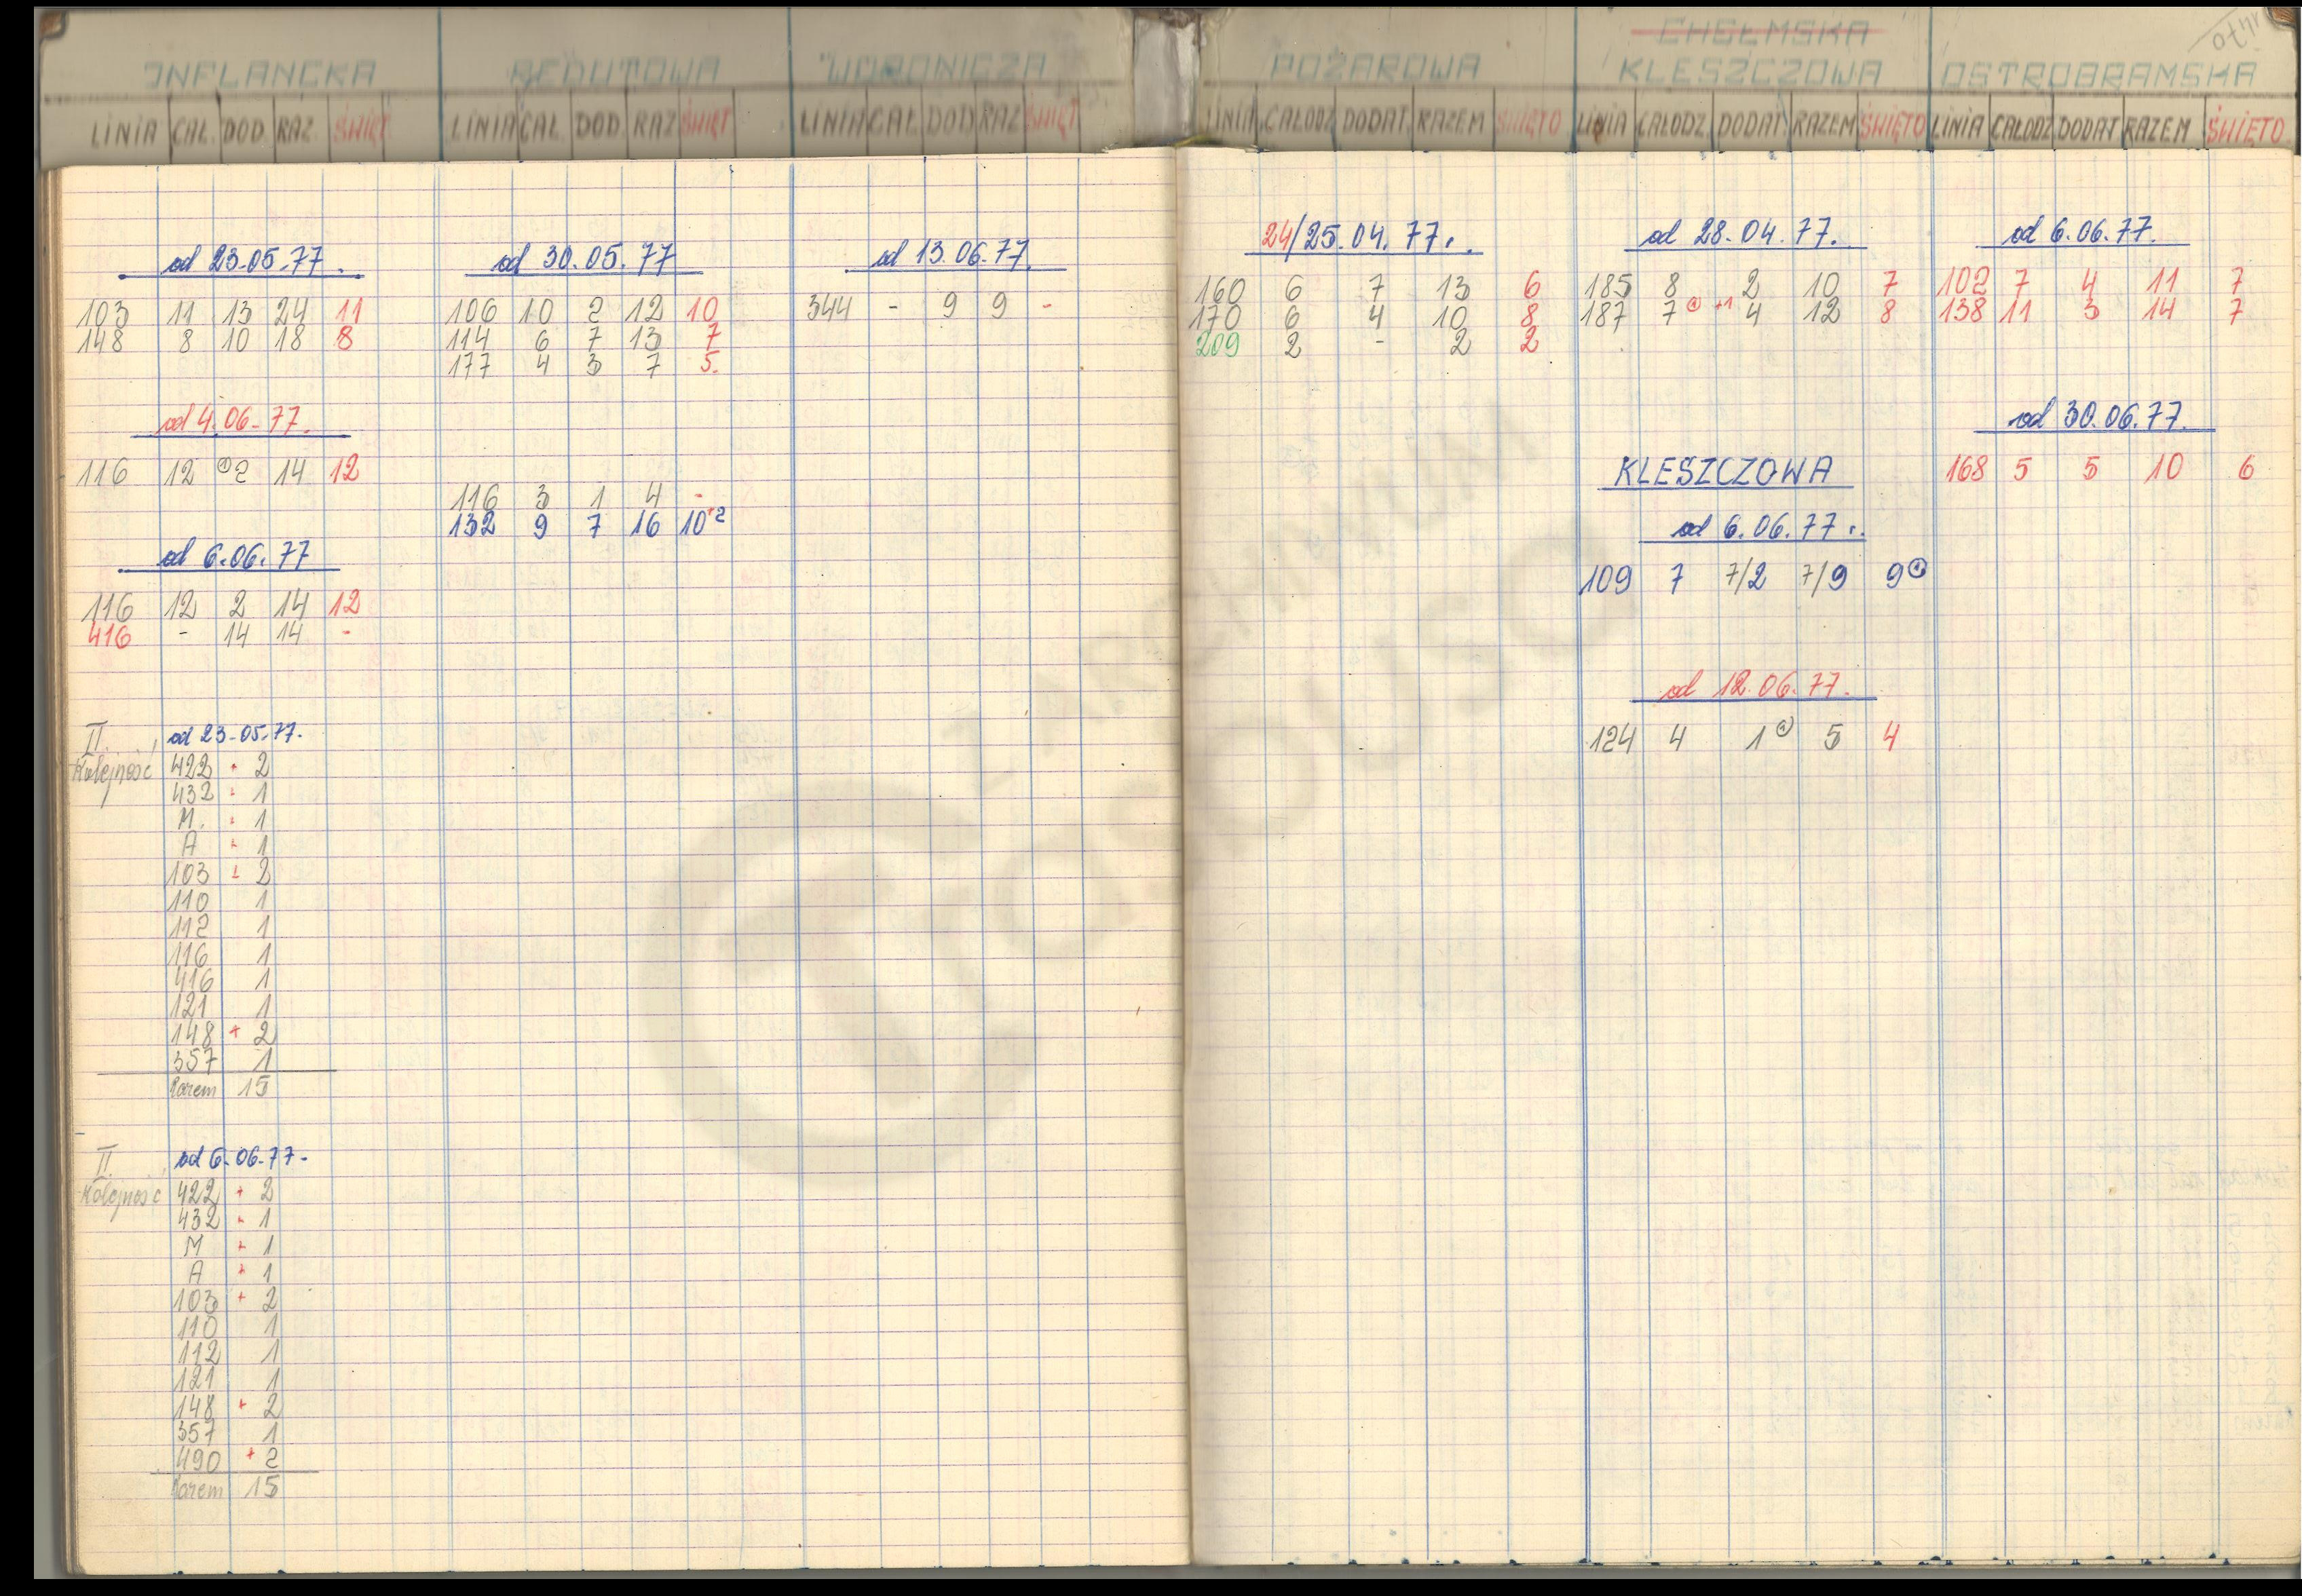 INFLANCKA
LINIA CAŁ. DOD. RAZ. ŚWIĘT
od 23.05.77.
103 11 13 24 11
148 8 10 18 8
od 4.06.77.
116 12 ①2 14 12
od 6.06.77
116 12 2 14 12
416 - 14 14 -
II. od 23.05.77.
Kolejność 422 + 2
432 + 1
M. + 1
A + 1
103 + 2
110 1
112 1
116 1
416 1
121 1
148 + 2
357 1
Razem 15
II. od 6.06.77.
Kolejność 422 + 2
432 + 1
M + 1
A + 1
103 + 2
110 1
112 1
121 1
148 + 2
357 1
490 + 2
Razem 15
REDUTOWA
LINIA CAŁ DOD. RAZ ŚWIĘT
od 30.05.77
106 10 2 12 10
114 6 7 13 7
177 4 3 7 5.
116 3 1 4 -
132 9 7 16 10+2
WORONICZA
LINIA CAŁ. DOD RAZ ŚWIĘT
od 13.06.77.
344 - 9 9 -
POŻAROWA
LINIA CAŁODZ. DODAT. RAZEM ŚWIĘTO
24/25.04.77r.
160 6 7 13 6
170 6 4 10 8
209 2 - 2 2
CHEŁMSKA
KLESZCZOWA
LINIA CAŁODZ. DODAT. RAZEM ŚWIĘTO
od 28.04.77.
185 8 2 10 7
187 7① +1 4 12 8
KLESZCZOWA
od 6.06.77r.
109 7 7/2 7/9 9①
od 12.06.77.
124 4 1① 5 4
OSTROBRAMSKA
LINIA CAŁODZ DODAT RAZEM ŚWIĘTO
od 6.06.77.
102 7 4 11 7
138 11 3 14 7
od 30.06.77.
168 5 5 10 6